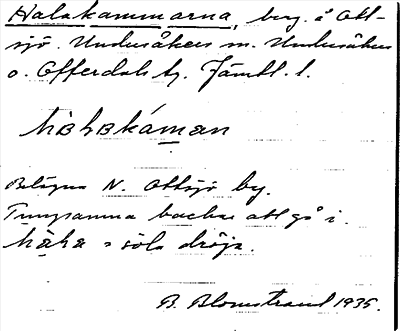 Halakammarna, berg å Ott-
sjö. Undersåkers sn. Undersåkers
o. Offerdals tg. Jämtl. l.
hàlakáman
Belägna N. Ottsjö by.
Tungsamma backar att gå i.
söla dröja.
B. Blomstrand 1935.